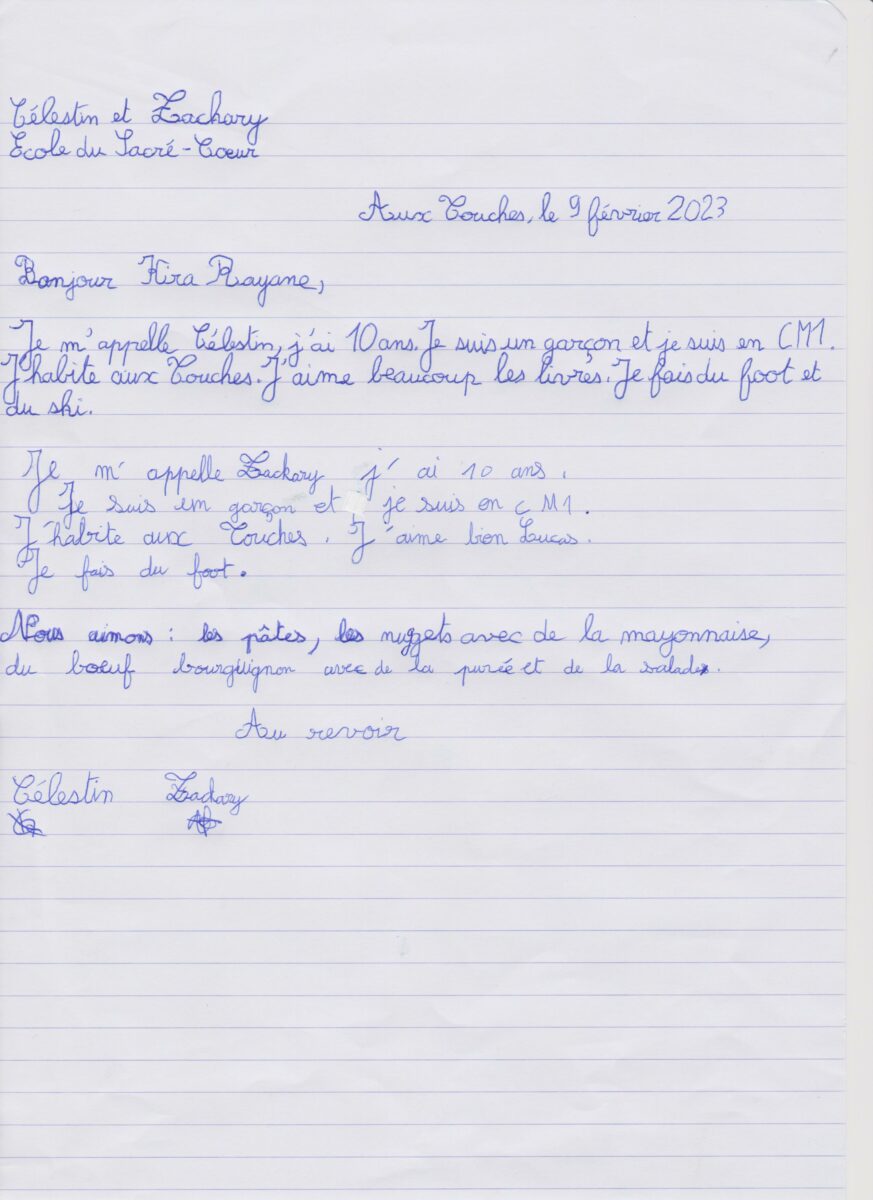 Célestin et Zachary
Ecole du Sacré-Coeur
Aux Touches, le 9 février 2023
Bonjour Kira Rayane,
Je m'appelle Célestin, j'ai 10 ans. Je suis un garçon et je suis en CM1.
J'habite aux Touches. J'aime beaucoup les livres. Je fais du foot et
du ski.
Je m'appelle Zackary j'ai 10 ans.
Je suis un garçon et je suis en CM1.
J'habite aux Touches. J'aime bien Lucas.
Je fais du foot.
Nous aimons : les pâtes, les nuggets avec de la mayonnaise,
du boeuf bourguignon avec de la purée et de la salade.
Au revoir
Célestin Zackary